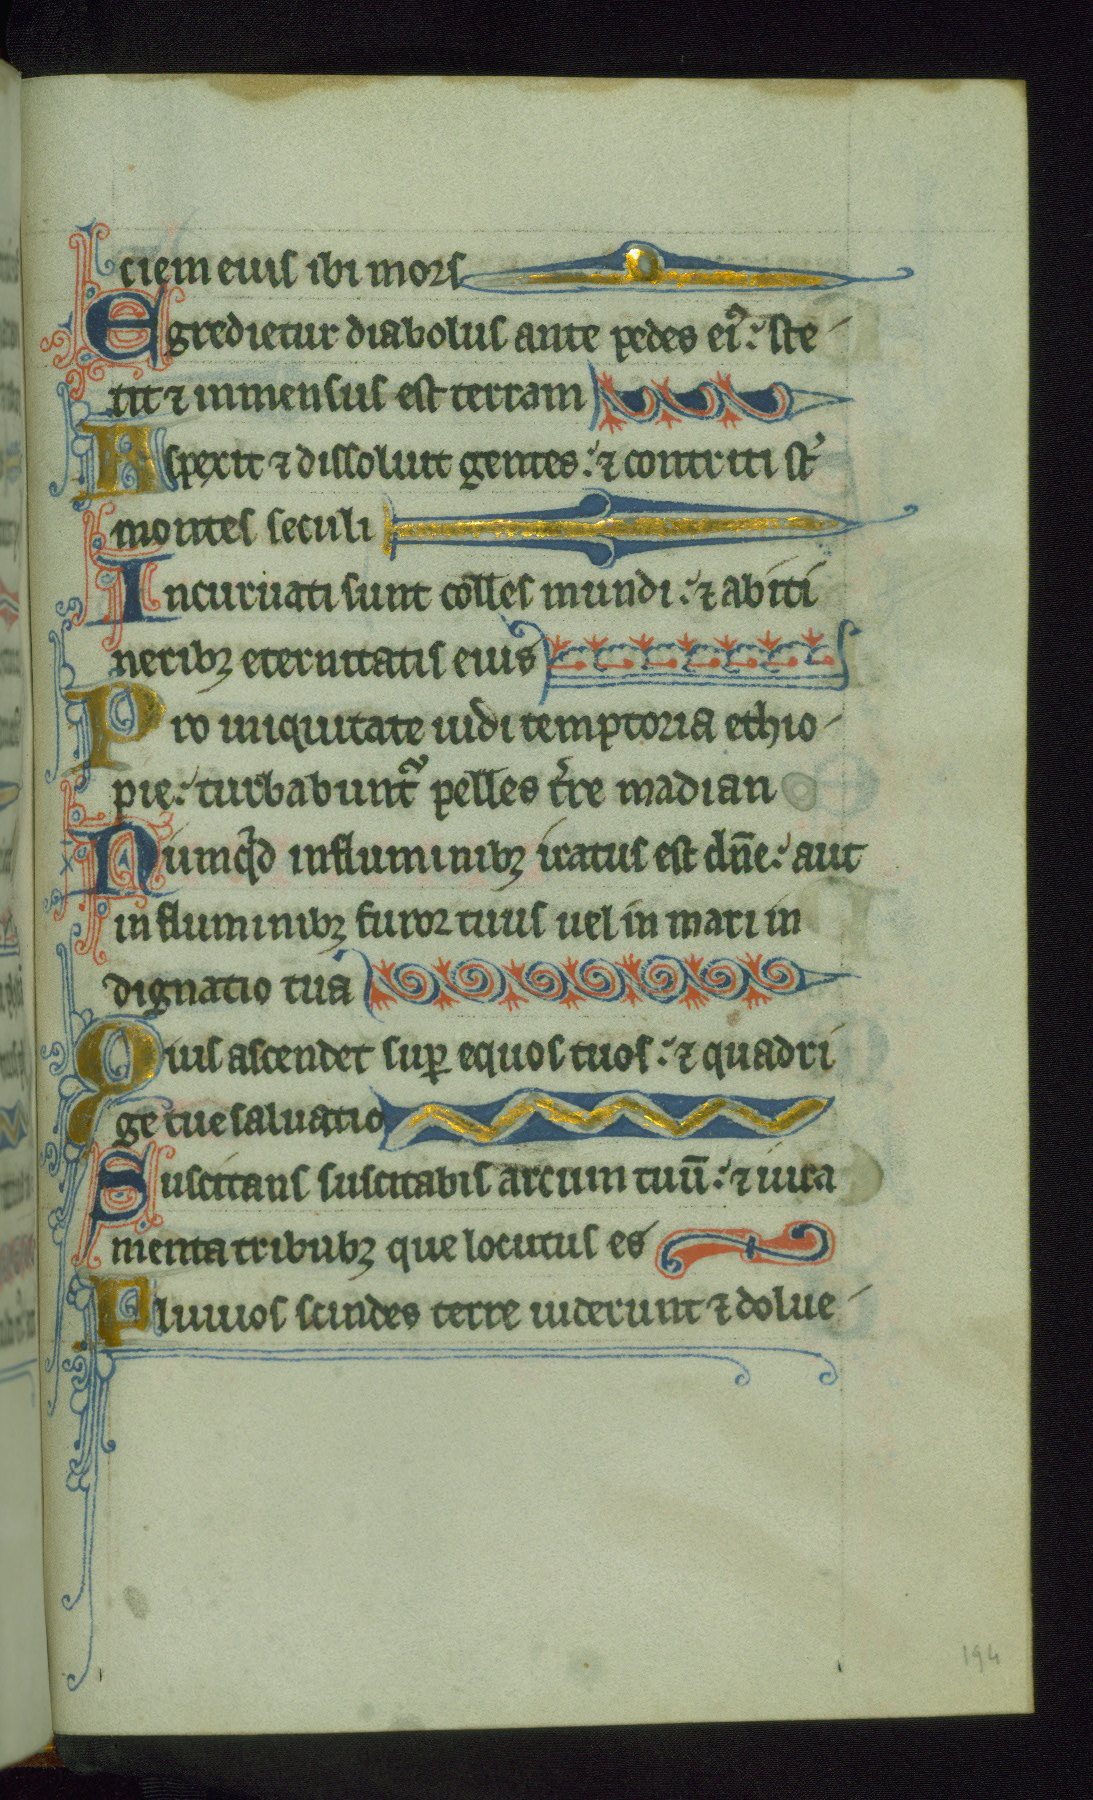 ciem eius ibi mors
Egredietur diabolus ante pedes ei⁹: ste
tit ⁊ inmensus est terram
Aspexit ⁊ dissoluit gentes: ⁊ contriti st̾
montes seculi
Incuruati sunt colles mundi: ⁊ ab iti
neribꝫ eternitatis eius
Pro iniquitate uidi temptoria ethio
pie: turbabunt᷑ pelles t̾re madian
Numq̾d in fluminibꝫ iratus est dn̄e: aut
in fluminibꝫ furor tuus uel in mari in
dignatio tua
Quis ascendet suꝑ equos tuos: ⁊ quadri
ge tue saluatio
Suscitans suscitabis arcum tuū: ⁊ iura
menta tribubꝫ que locutus es
Pluuios scindes terre uiderunt ⁊ dolue
194